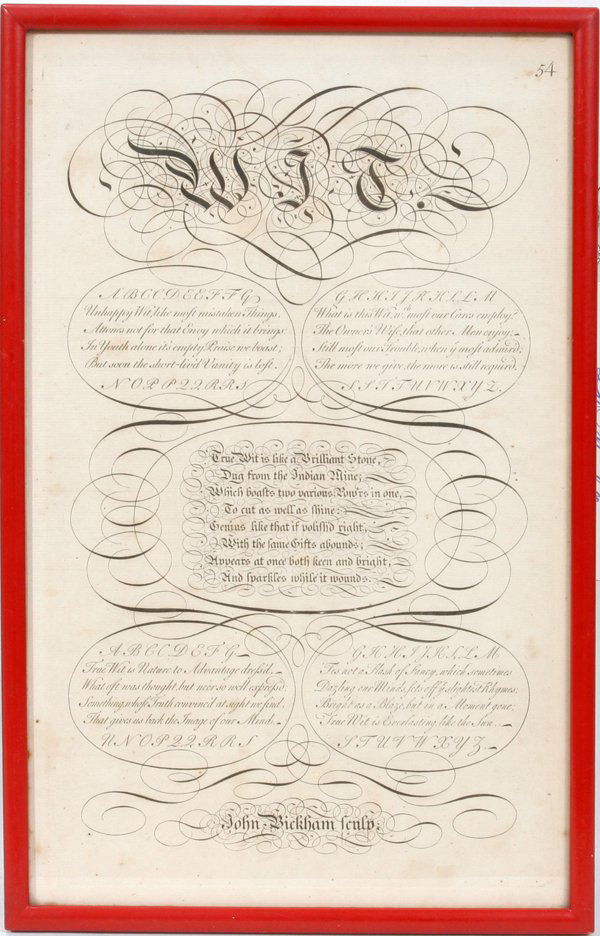 54
WIT.
A B C C D E E F F G
Unhappy Wit, like most mistaken Things,
Attones not for that Envy which it brings:
In Youth alone it's empty Praise we boast;
But soon the short-liv'd Vanity is lost.
N O P P Q Q R R S
G H H I J K K L L M
What is this Wit, wch. must our Cares employ?
The Owner's Wife, that other Men enjoy;
Still most our Trouble, when ye most admir'd;
The more we give, the more is still requir'd.
S S T T U V W X Y Z.
True Wit is like a Brilliant Stone,
Dug from the Indian Mine;
Which boasts two various Pow'rs in one,
To cut as well as shine:
Genius like that if polish'd right,
With the same Gifts abounds;
Appears at once both keen and bright,
And sparkles while it wounds.
A B C C D E F G
True Wit is Nature to Advantage dress'd,
What oft was thought, but neer so well express'd.
Something, whose Truth convinc'd at sight we find,
That gives us back the Image of our Mind.
N N O P Q Q R R S
G H H I J K L L M
Tis not a Flash of Fancy, which sometimes
Dazling our Minds, sets off ye slightest Rhymes;
Bright as a Blaze, but in a Moment gone;
True Wit is Everlasting, like the Sun.
S T U V W X Y Z.
John Bickham sculp.